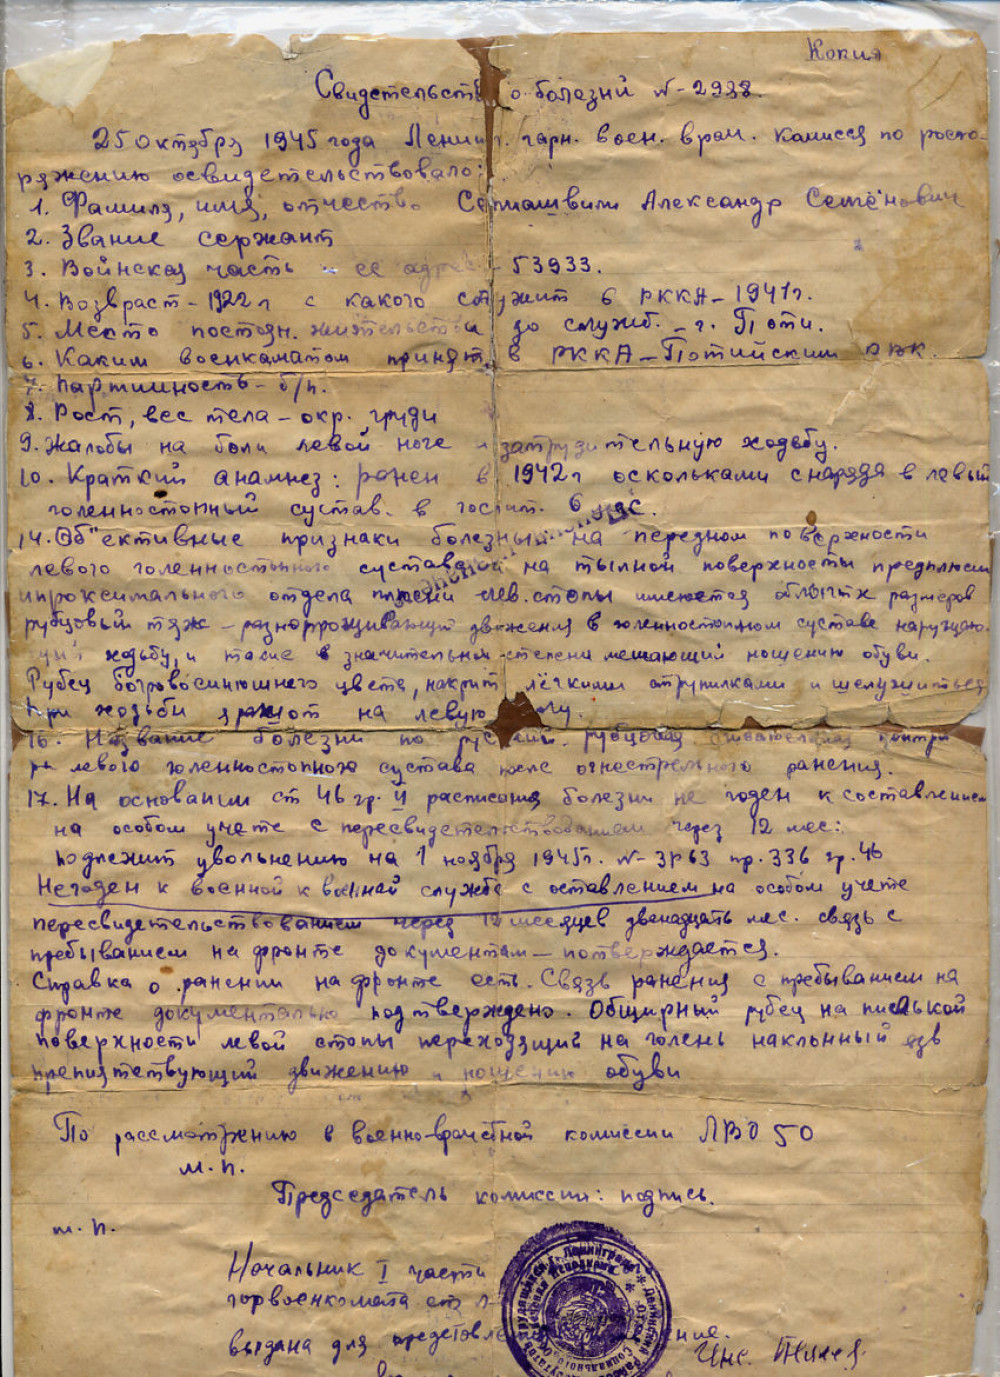 Копия
Свидетельств о болезни N-2938.
25 октября 1945 года Ленинг. гарн. воен. врач. комисся по распо-
ряжению освидетельствовало:
1. Фамиля, имя, отчество Александр Семёнович
2. Звание сержант
3. Войнская часть и ее адрес - 53933.
4. Возвраст - 1922 г с какого служит в РККА - 1941 г.
5. Место постоян. жительства до служб. - г. Поти.
6. Каким военкаматом принят в РККА - Потийским РВК.
7. Партийность - б/п.
8. Рост, вес тела - окр. груди
9. Жалобы на боли левой ноге и затрудительную ходьбу.
10. Краткий анамнез: ранен в 1942 г осколками снаряда в левый
голенностопный сустав. в госпит. 6 мес.
14. Об"ективные признаки болезный на передном поверхности
левого голенностопного сустава и на тылной поверхносты предплюсни
ипроксимального отдела плюсни лев. стопы имеется размеров
рубцовый тяж - движения в голенностопном суставе
ходьбу, и также в значительной степени мешающий ношению обуви.
Рубец богровосинюшнего цвета, накрит лёгкими струпиками и
При ходьби на левую ногу.
16. Название болезни по русский. рубцовая
ра левого голенностопного сустава после огнестрельного ранения.
17. На основании ст 46 гр. II расписания болезни не годен к составлением
на особом учете с пересвидетельствованием через 12 мес:
подлежит увольнению на 1 ноября 1945 г. N-3Р63 пр. 336 гр. 46
Негоден к военной к военной службе с оставлением на особом учете
пересвидетельствованием через 12 месяцев двенадцать мес. связь с
пребыванием на фронте документам - потверждается.
Справка о ранении на фронте есть. Связь ранения с пребыванием на
фронте документально подтверждено. Общирный рубец на
поверхности левой стопы переходящий на голень наклонный язв
препятствующий движению и ношению обуви
По рассмотрению в военно-врачебной комиссии ЛВО 50
м. п.
Председатель комиссии: подпись.
м. п.
Начальник I части
горвоенкомата ст л-
выдана для предстовле ние.